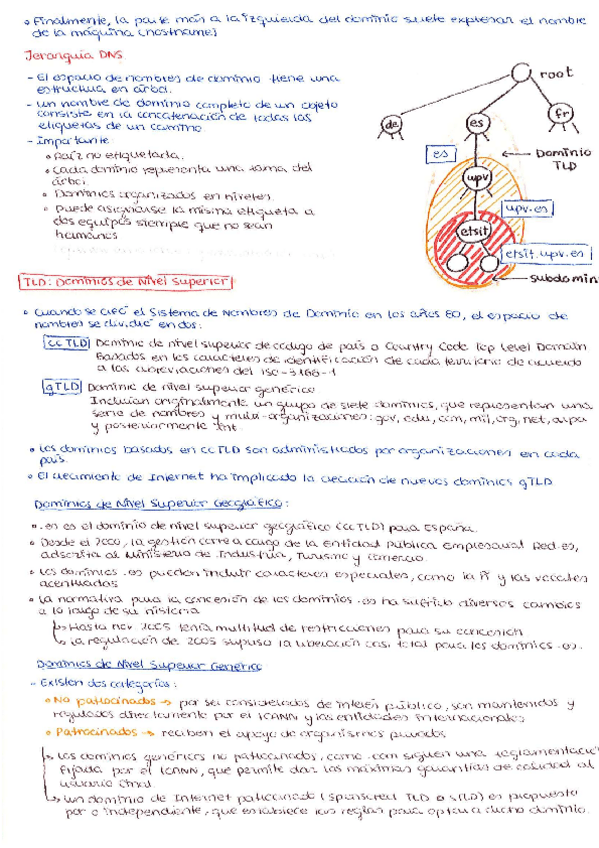 • Finalmente, la parte más a la izquierda del dominio suele expresar el nombre
de la máquina (hostname)
Jerarquía DNS
- El espacio de nombres de dominio tiene una
estructura en árbol.
- Un nombre de dominio completo de un objeto
consiste en la concatenación de todas las
etiquetas de un camino.
- Importante
• Raíz no etiquetada.
• Cada dominio representa una rama del
árbol.
• Dominios organizados en niveles.
• Puede asignarse la misma etiqueta a
dos equipos siempre que no sean
hermanos
root
de
es
fr
es
Dominio
TLD
upv
upv.es
etsit
etsit.upv.es
subdomin
TLD: Dominios de Nivel Superior
• Cuando se creó el Sistema de Nombres de Dominio en los años 80, el espacio de
nombres se dividió en dos:
ccTLD Dominio de nivel superior de código de país o Country Code Top Level Domain
Basados en los caracteres de identificación de cada territorio de acuerdo
a las abreviaciones del ISO-3166-1
gTLD Dominio de nivel superior genérico
Incluían originalmente un grupo de siete dominios, que representan una
serie de nombres y multi-organizaciones: gov, edu, com, mil, org, net, arpa
y posteriormente int
• Los dominios basados en ccTLD son administrados por organizaciones en cada
país.
• El crecimiento de Internet ha implicado la creación de nuevos dominios gTLD
Dominios de Nivel Superior Geográfico:
• .es es el dominio de nivel superior geográfico (ccTLD) para España.
• Desde el 2000, la gestión corre a cargo de la Entidad Pública Empresarial Red.es,
adscrita al Ministerio de Industria, Turismo y Comercio.
• Los dominios .es pueden incluir caracteres especiales, como la ñ y las vocales
acentuadas
• La normativa para la concesión de los dominios .es ha sufrido diversos cambios
a lo largo de su historia
↳ Hasta nov 2005 tenía multitud de restricciones para su concesión
↳ La regulación de 2005 supuso la liberación casi total para los dominios .es.
Dominios de Nivel Superior Genérico
- Existen dos categorías:
• No patrocinados → por ser considerados de interés público, son mantenidos y
regulados directamente por el ICANN y las entidades internacionales
• Patrocinados → reciben el apoyo de organismos privados
↳ Los dominios genéricos no patrocinados, como .com siguen una reglamentació
fijada por el ICANN, que permite dar las máximas garantías de calidad al
usuario final
↳ Un dominio de Internet patrocinado (Sponsored TLD o sTLD) es propuesto
por o independiente, que establece las reglas para optar a dicho dominio.